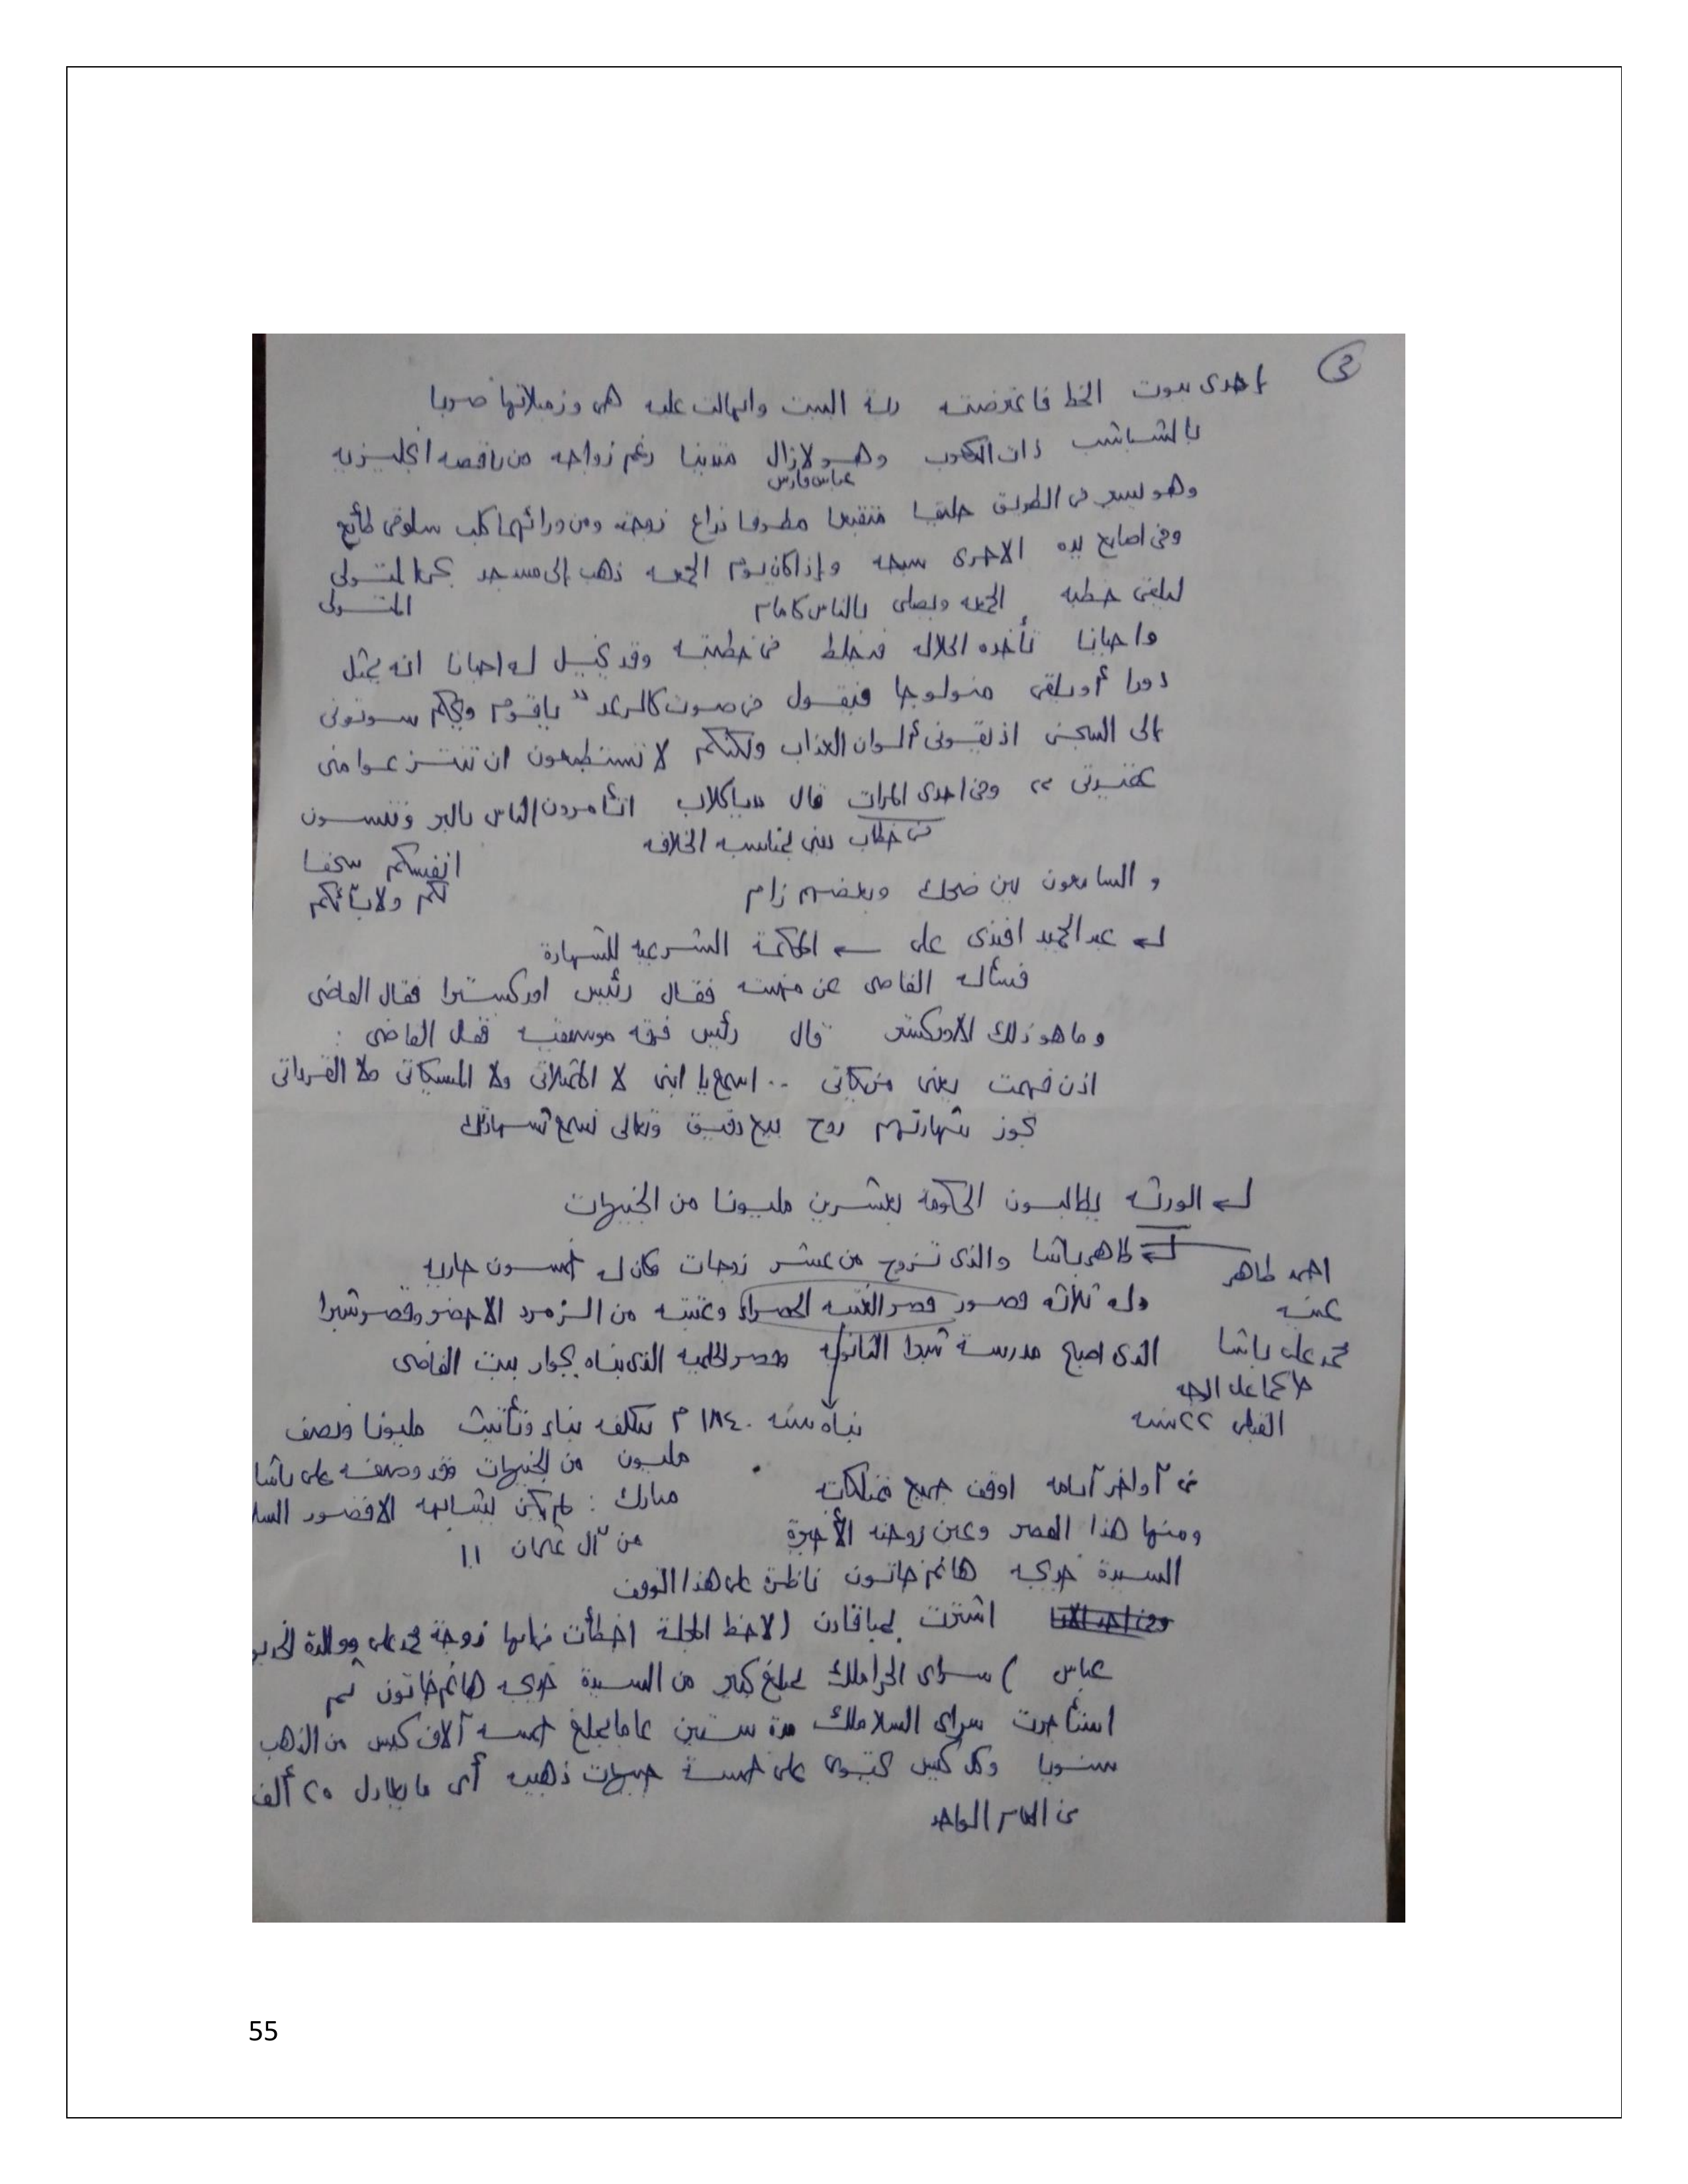 3
إحدى بيوت الخط فاعترضته ربة البيت وانهالت عليه هى وزميلاتها ضربا
بالشباشب ذات الكعوب وهو لازال متدينا رغم زواجه من راقصه انجليزيه
عباس فارس
وهو يسير فى الطريق حليقا متقبعا مطوقا ذراع زوجته ومن ورائهما كلب سلوقى طائع
وفى اصابع يده الاخرى سبحه وإذا كان يوم الجمعه ذهب إلى مسجد المتولى
ليلقى خطبه الجمعه ويصلى بالناس كامام المتولى
واحيانا تأخذه الجلاله فيخلط فى خطبته وقد يخيل له احيانا انه يمثل
دورا أو يلقى منولوجا فيقول فى صوت كالرعد " ياقوم ويحكم سوقونى
إلى السجن اذيقونى ألوان العذاب ولكنكم لا تستطيعون ان تنتزعوا منى
عقيدتى " وفى احدى المرات قال ياكلاب اتأمرون الناس بالبر وتنسون
فى خطاب دينى بمناسبه الخلافه
انفسكم سحقا
لكم ولابائكم
و السامعون بين ضحك وبعضهم زام
عبد الحميد افندى على ← المحكمة الشرعيه للشهادة
فسأله القاضى عن مهنته فقال رئيس اوركسترا فقال القاضى
وما هو ذلك الاوركستر قال رئيس فرقه موسيقيه فقال القاضى :
اذن فهمت يعنى مزيكاتى .. اسمع يا ابنى لا الممثلاتى ولا المسيكاتى ولا القرداتى
تجوز شهادتهم روح بيع دقيق وتعالى نسمع شهادتك
الورثه يطالبون الحكومة بعشرين مليونا من الجنيهات
طاهر باشا والذى تزوج من عشر زوجات كان له خمسون جاريه
احمد طاهر
وله ثلاثه قصور قصر العتبه الخضراء وعتبته من الزمرد الاخضر وقصر شبرا
عينه
الذى اصبح مدرسة شبرا الثانويه وقصر الحلميه الذى بناه بجوار بيت القاضى
محمد على باشا
حاكما على الوجه
القبلى ٢٢ سنه
بناه سنه ١٨٤٠ م تكلف بناء وتأثيث مليونا ونصف
مليون من الجنيهات وقد وصفه على باشا
مبارك : لم يكن يشابهه الا قصور السلا
من آل عثمان !!
فى آواخر آيامه اوقف جميع ممتلكاته
ومنها هذا القصر وعين زوجته الأخيرة
السيدة خديجه هانم خاتون ناظرة على هذا الوقف
اشترت بمباقادن ( لاحظ المجلة اخطأت زوجة محمد على ووالدة الخديو
عباس ) سراى الحرملك بمبلغ كبير من السيدة خديجه هانم خاتون ثم
استأجرت سراى السلاملك مدة ستين عاما بمبلغ خمسه آلاف كيس من الذهب
سنويا وكل كيس يحتوى على خمسة جنيهات ذهبيه أى ما يعادل ٢٥ ألف
فى العام الواحد
55